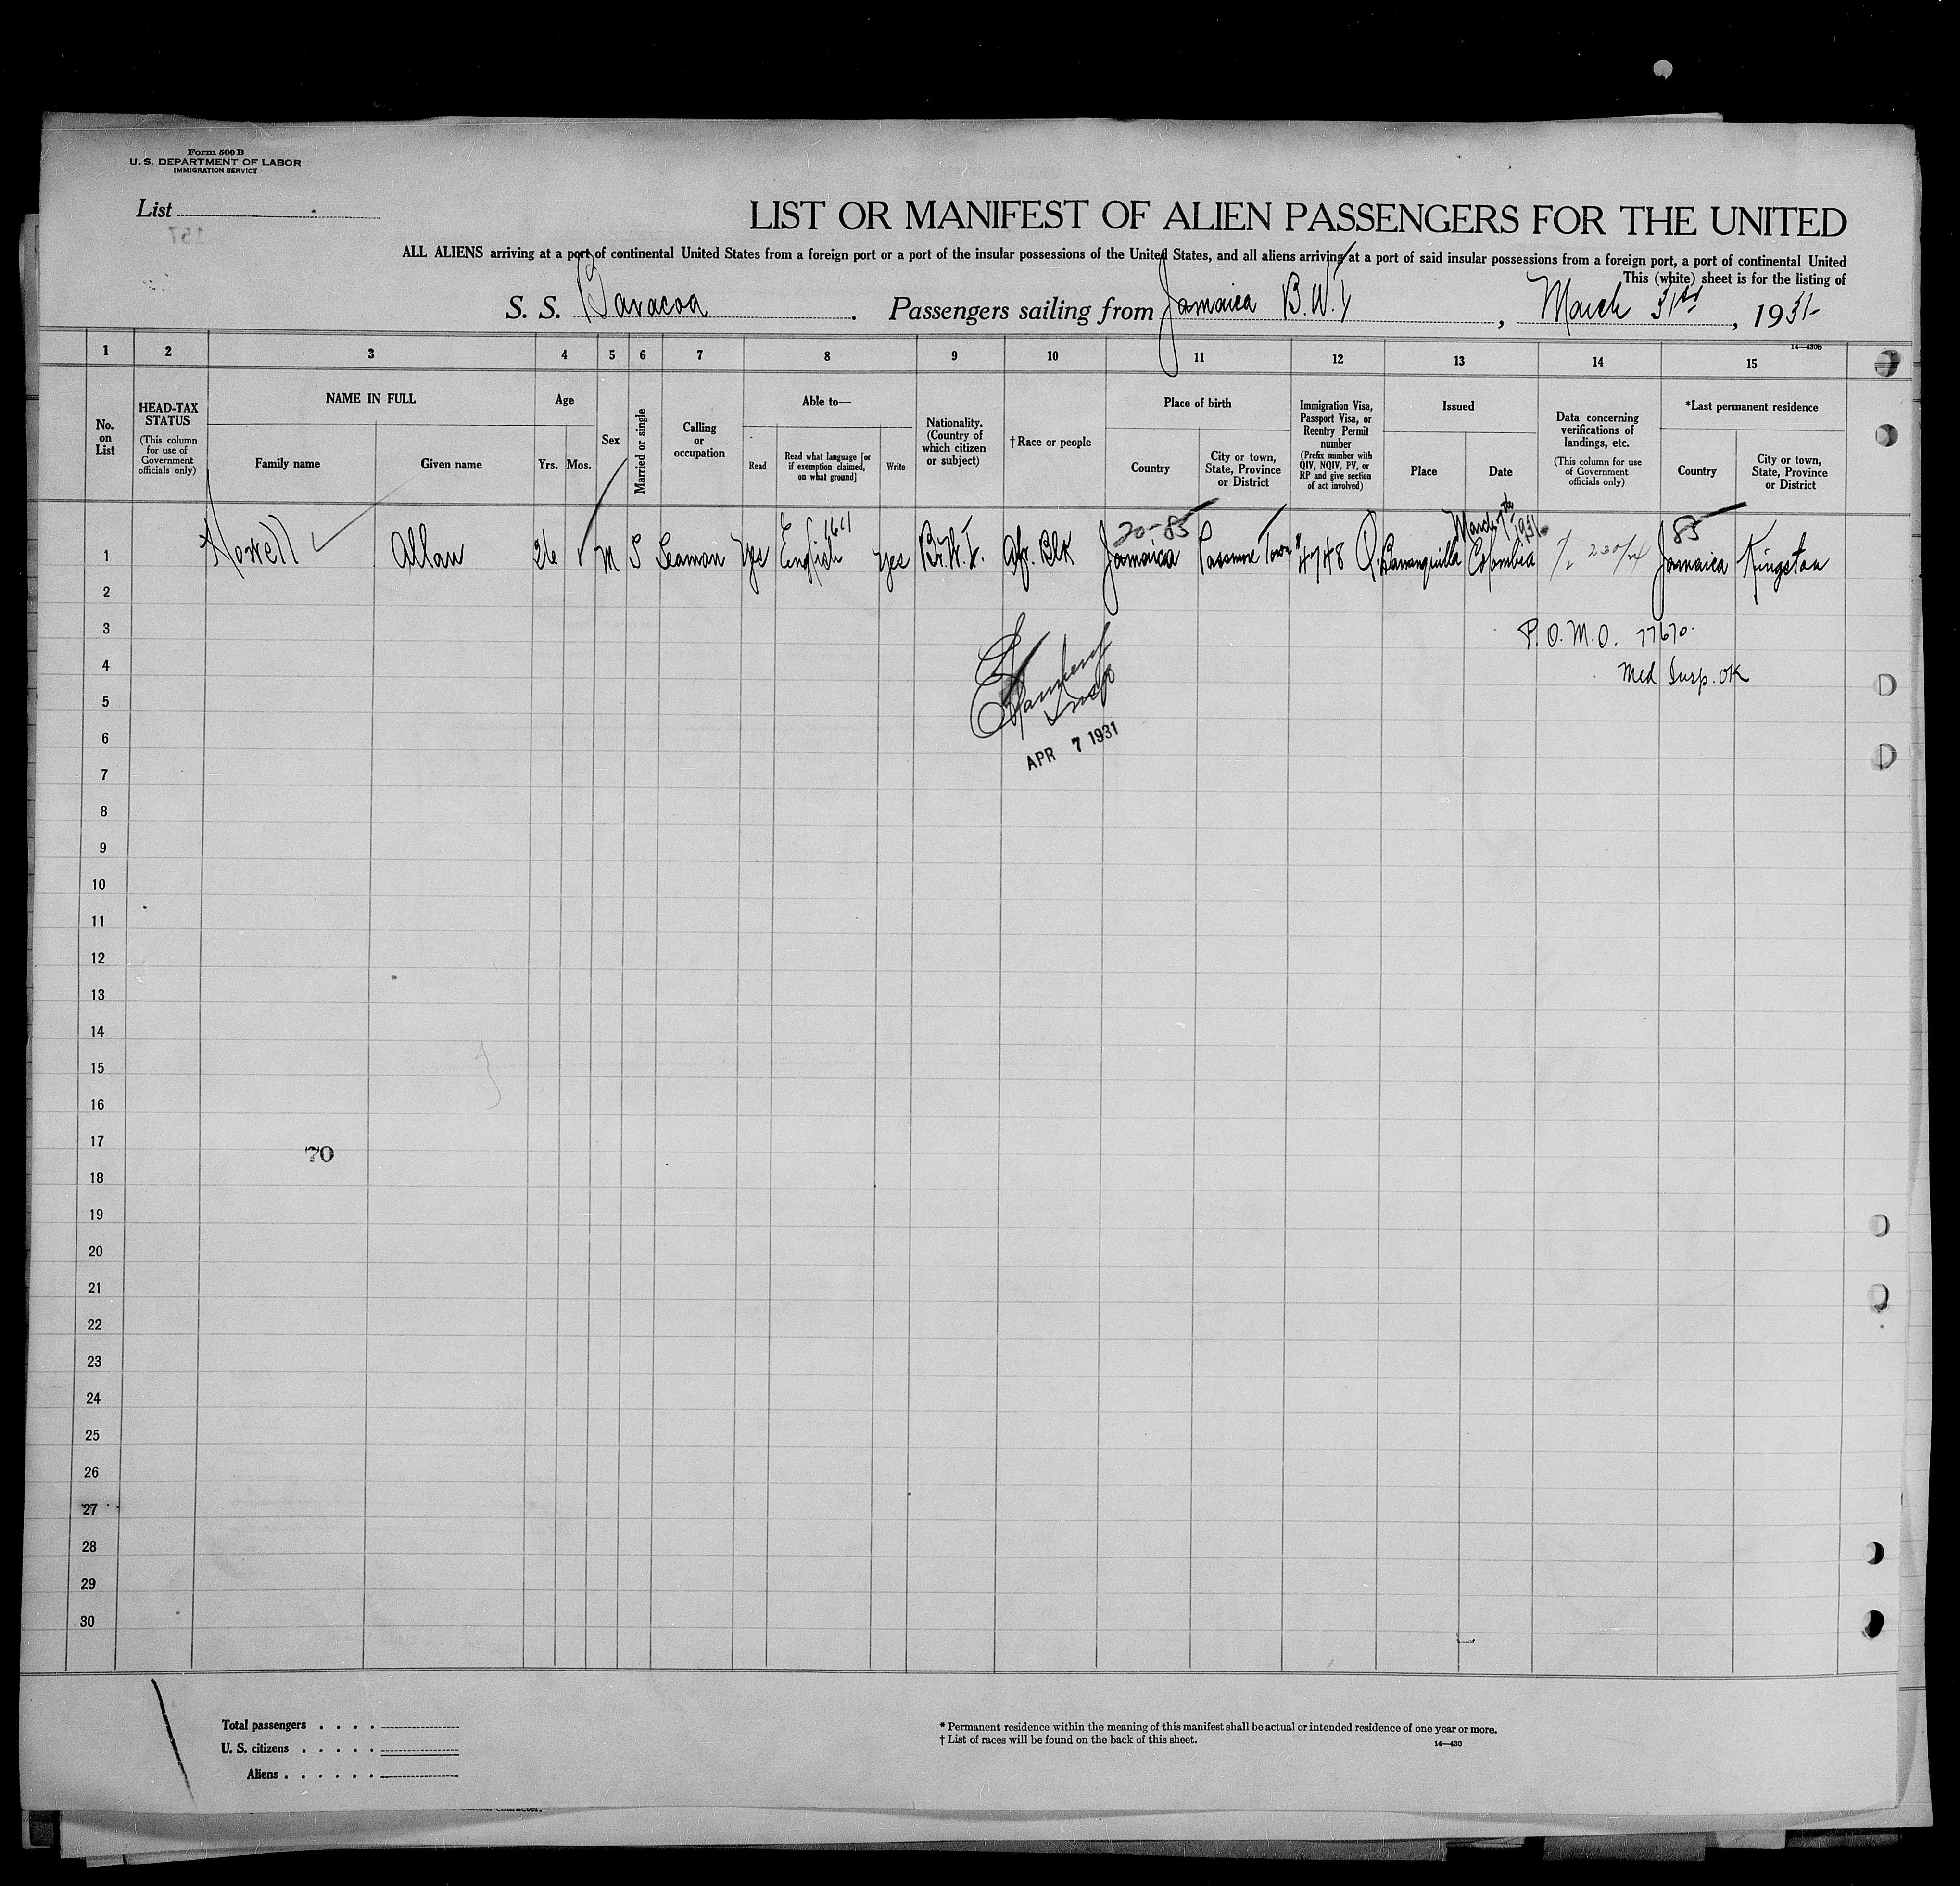 Form 500 B
U. S. DEPARTMENT OF LABOR
IMMIGRATION SERVICE
List
157
LIST OR MANIFEST OF ALIEN PASSENGERS FOR THE UNITED
ALL ALIENS arriving at a port of continental United States from a foreign port or a port of the insular possessions of the United States, and all aliens arriving at a port of said insular possessions from a foreign port, a port of continental United
This (white) sheet is for the listing of
S. S. Baracoa . Passengers sailing from Jamaica B.W.I , March 31st , 1931
14—430b
1 2 3 4 5 6 7 8 9 10 11 12 13 14 15
No. on List
HEAD-TAX STATUS (This column for use of Government officials only)
NAME IN FULL
Family name Given name
Age
Yrs. Mos.
Sex
Married or single
Calling or occupation
Able to—
Read
Read what language [or if exemption claimed, on what ground]
Write
Nationality. (Country of which citizen or subject)
†Race or people
Place of birth
Country
City or town, State, Province or District
Immigration Visa, Passport Visa, or Reentry Permit number (Prefix number with QIV, NQIV, PV, or RP and give section of act involved)
Issued
Place Date
Data concerning verifications of landings, etc. (This column for use of Government officials only)
*Last permanent residence
Country
City or town, State, Province or District
20-85 March 7th 1931 85
1 Howell Allan 26 M S Seaman Yes English Yes B.W.I. Afr. Blk Jamaica Town 4748 Q. Barranquilla Colombia Jamaica Kingston
2
3
P.O.M.O. 77670
4
Med Insp. OK
5
Insp
6
APR 7 1931
7
8
9
10
11
12
13
14
15
16
17
70
18
19
20
21
22
23
24
25
26
27
28
29
30
Total passengers . . . .
U. S. citizens . . . . .
Aliens . . . . . .
* Permanent residence within the meaning of this manifest shall be actual or intended residence of one year or more.
† List of races will be found on the back of this sheet.
14—430